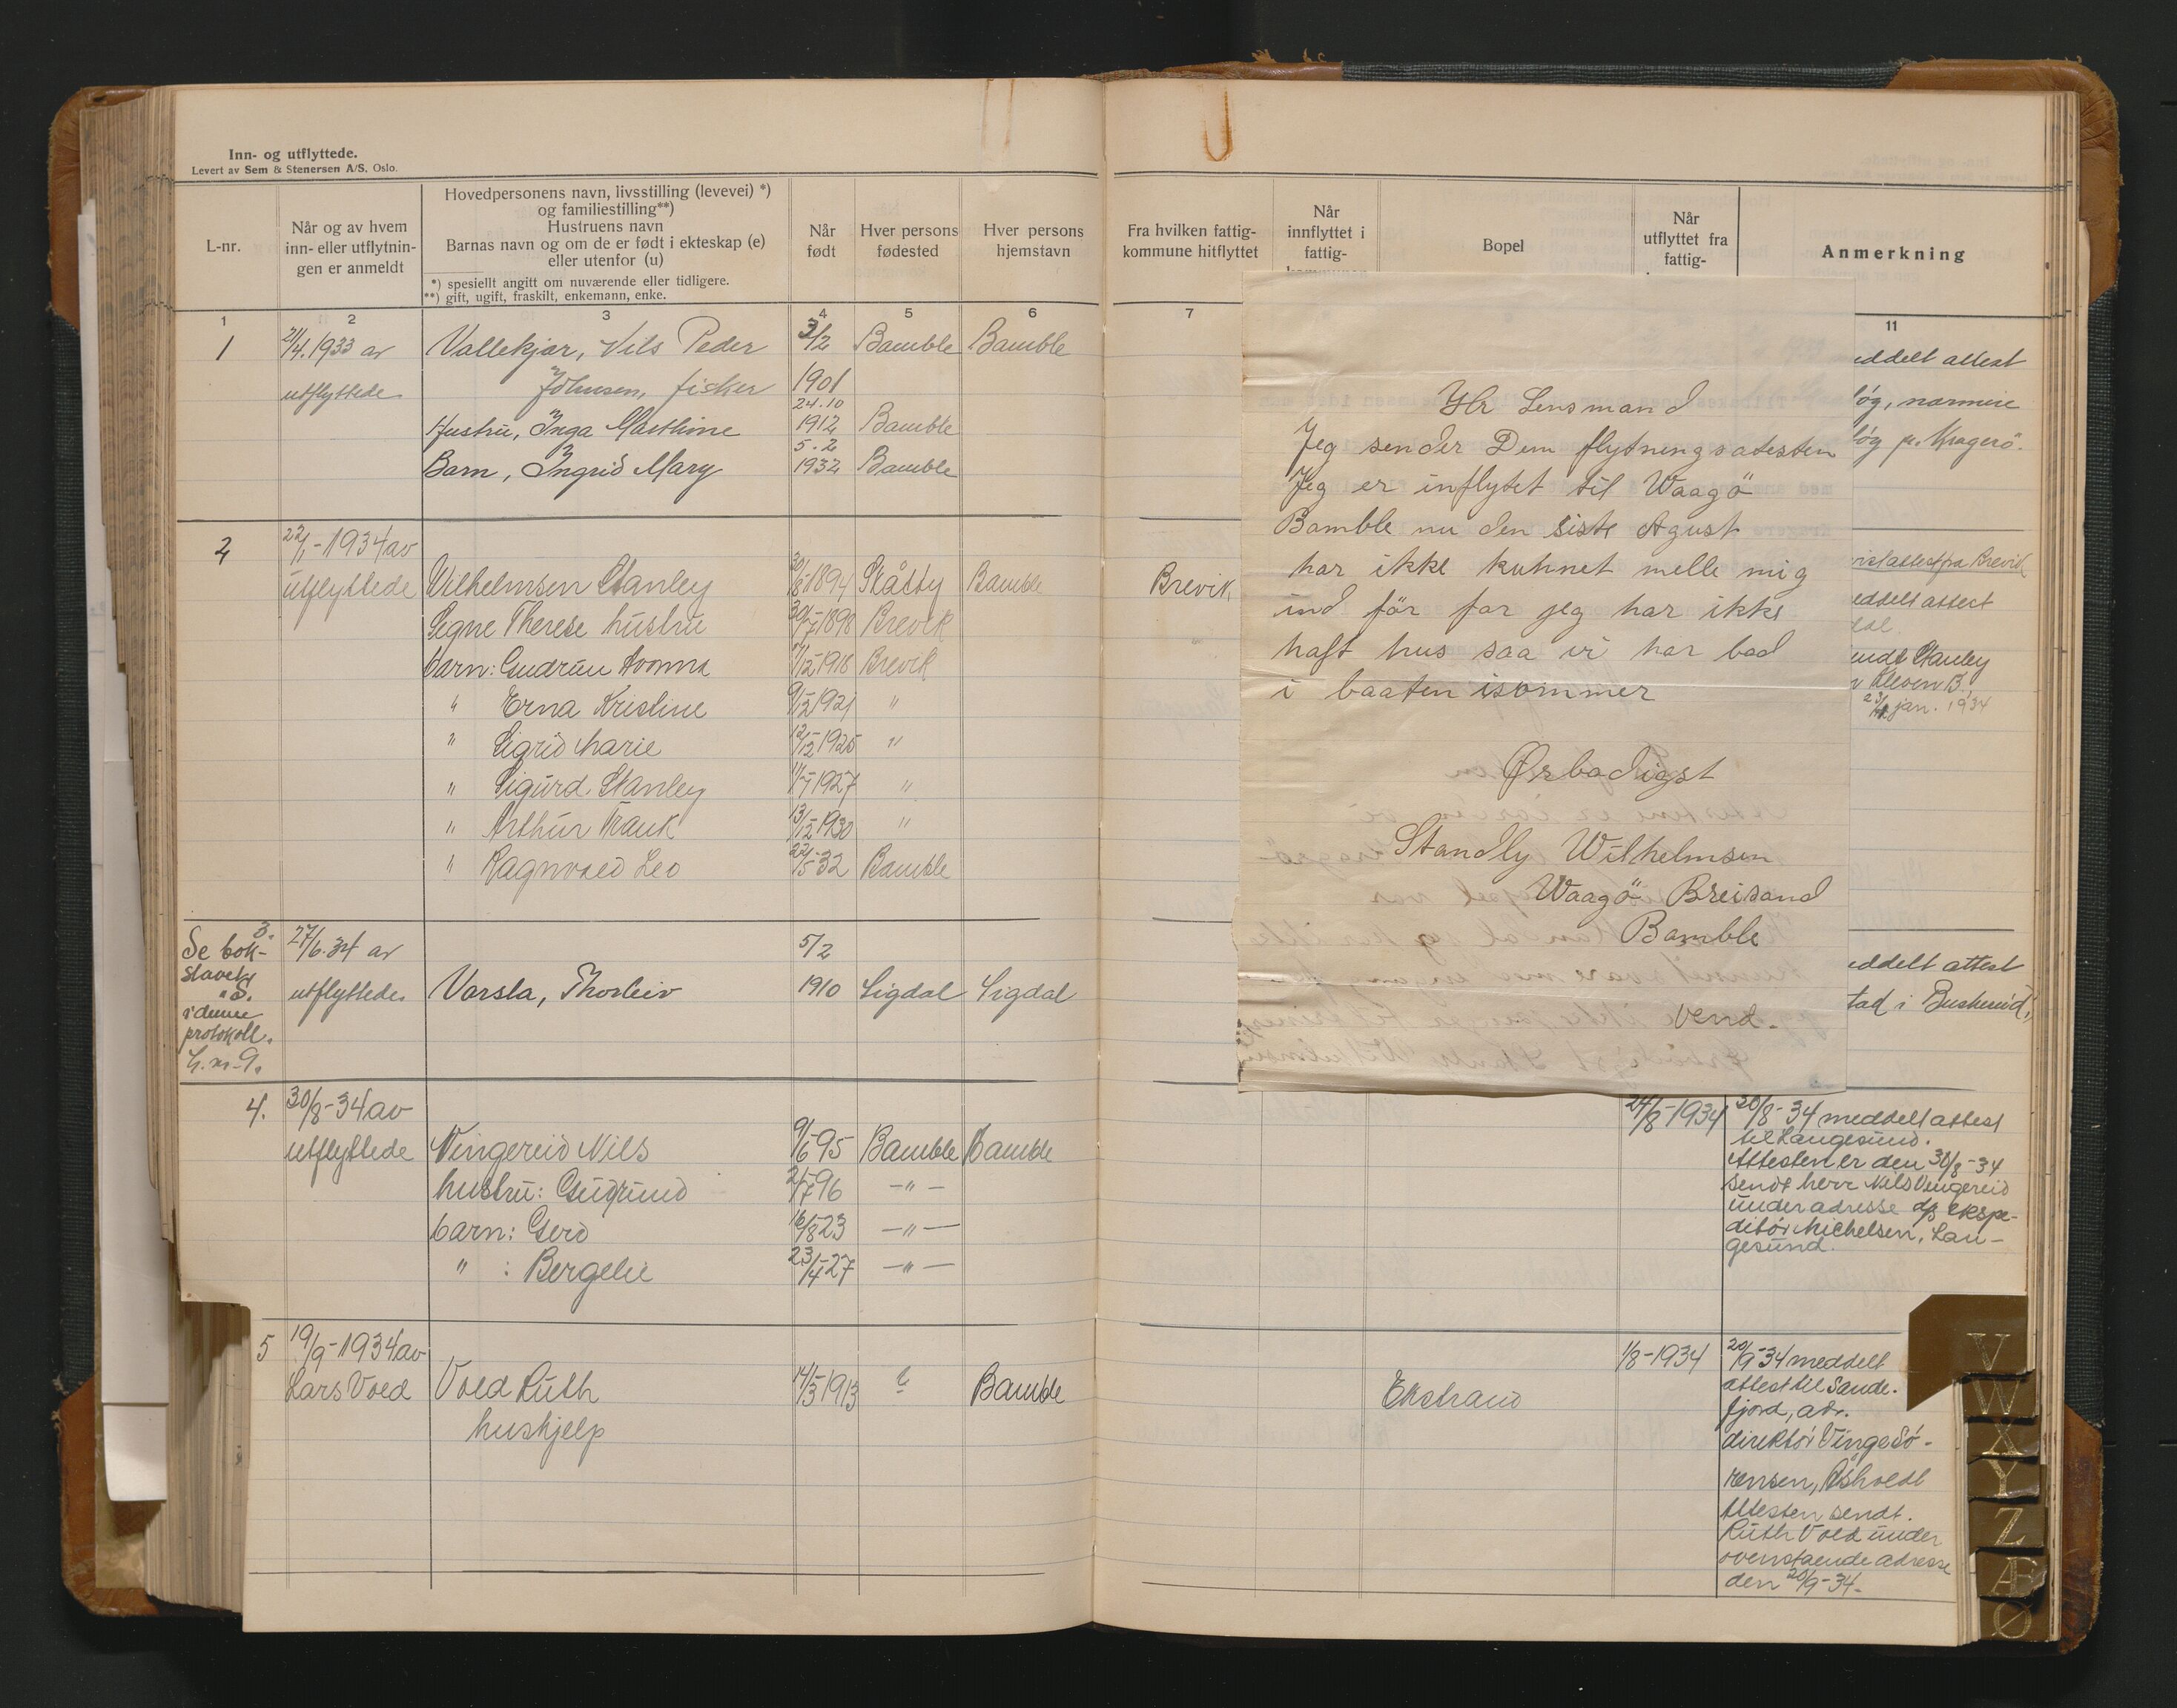 Inn- og utflyttede.
Levert av Sem & Stenersen A/S, Oslo.
L-nr.
Når og av hvem
inn- eller utflytnin-
gen er anmeldt
Hovedpersonens navn, livsstilling (levevei) *)
og familiestilling**)
Hustruens navn
Barnas navn og om de er født i ekteskap (e)
eller utenfor (u)
*) spesiellt angitt om nuværende eller tidligere.
**) gift, ugift, fraskilt, enkemann, enke.
Når
født
Hver persons
fødested
Hver persons
hjemstavn
1 2 3 4 5 6
1 21/4.1933 av Vallekjær, Nils Peder 3/2 Bamble Bamble
utflyttede Johnsen, fisker 1901
24.10
Hustru, Inga Marthine 1912 Bamble
5.2
Barn, Ingrid Mary 1932 Bamble
2 22/1-1934 av
utflyttede Wilhelmsen Stanley 1894 Skåtøy Bamble
Signe Therese hustru 30/7-1898 Brevik
barn: Gudrun 1918 Brevik
" Erna Kristine 9/12 1921 "
" Sigrid Marie 12/12-1925 "
" Sigurd Stanley 11/7-1927 "
" Arthur Frank 13/12-1930 "
" Ragnvald Leo 22/5-32 Bamble
3. 27/6.34 av 5/2
Se bok-
staven
"S.
i denne
protokoll.
L.nr. 9.
utflyttede Varsla, Thorleiv 1910 Sigdal Sigdal
4. 30/8-34 av
utflyttede Vingereid Nils 9/6-95 Bamble Bamble
hustru: Gudrund 2/7-96 -"-
barn: Gerd 16/8-23 -"-
" : Bergelie 23/4-27 -"-
5 19/9-1934 av
Lars Vold Vold Ruth 14/3-1913 ? Bamble
huskjelp
Fra hvilken fattig-
kommune hitflyttet
Når
innflyttet i
fattig-
Bopel
Når
utflyttet fra
fattig-
Anmerkning
7 11
Brevik
Hr Lensmand
Jeg sender Dem flytningsatesten
Jeg er inflytet til Waagö
Bamble nu den siste Agust
har ikke kuhnet melle mig
ind för for jeg har ikke
haft hus saa vi har bod
i baaten isommer
Ørbødigst
Standly Wilhelmsen
Waagö Breisand
Bamble
Vend.
eddelt attest
øg, nærmere
øg pr. Kragerö.
attest fra Brevik
eddelt attest
dal.
endt Stanley
23/1 jan. 1934
eddelt attest
tad i Buskerud,
24/8-1934 30/8-34 meddelt attest
til Langesund.
Attesten er den 30/8-34
sendt herr Nils Vingereid
under adresse d/s ekspe-
ditör Michelsen, Lan-
gesund.
Ekstrand 1/8-1934 20/9-34 meddelt
attest til Sande-
fjord, adr.
direktör Vinge Sö-
rensen,
Attesten sendt
Ruth Vold under
ovenstaende adresse
den 20/9-34.
V
W
X
Y
Z
Æ
Ø